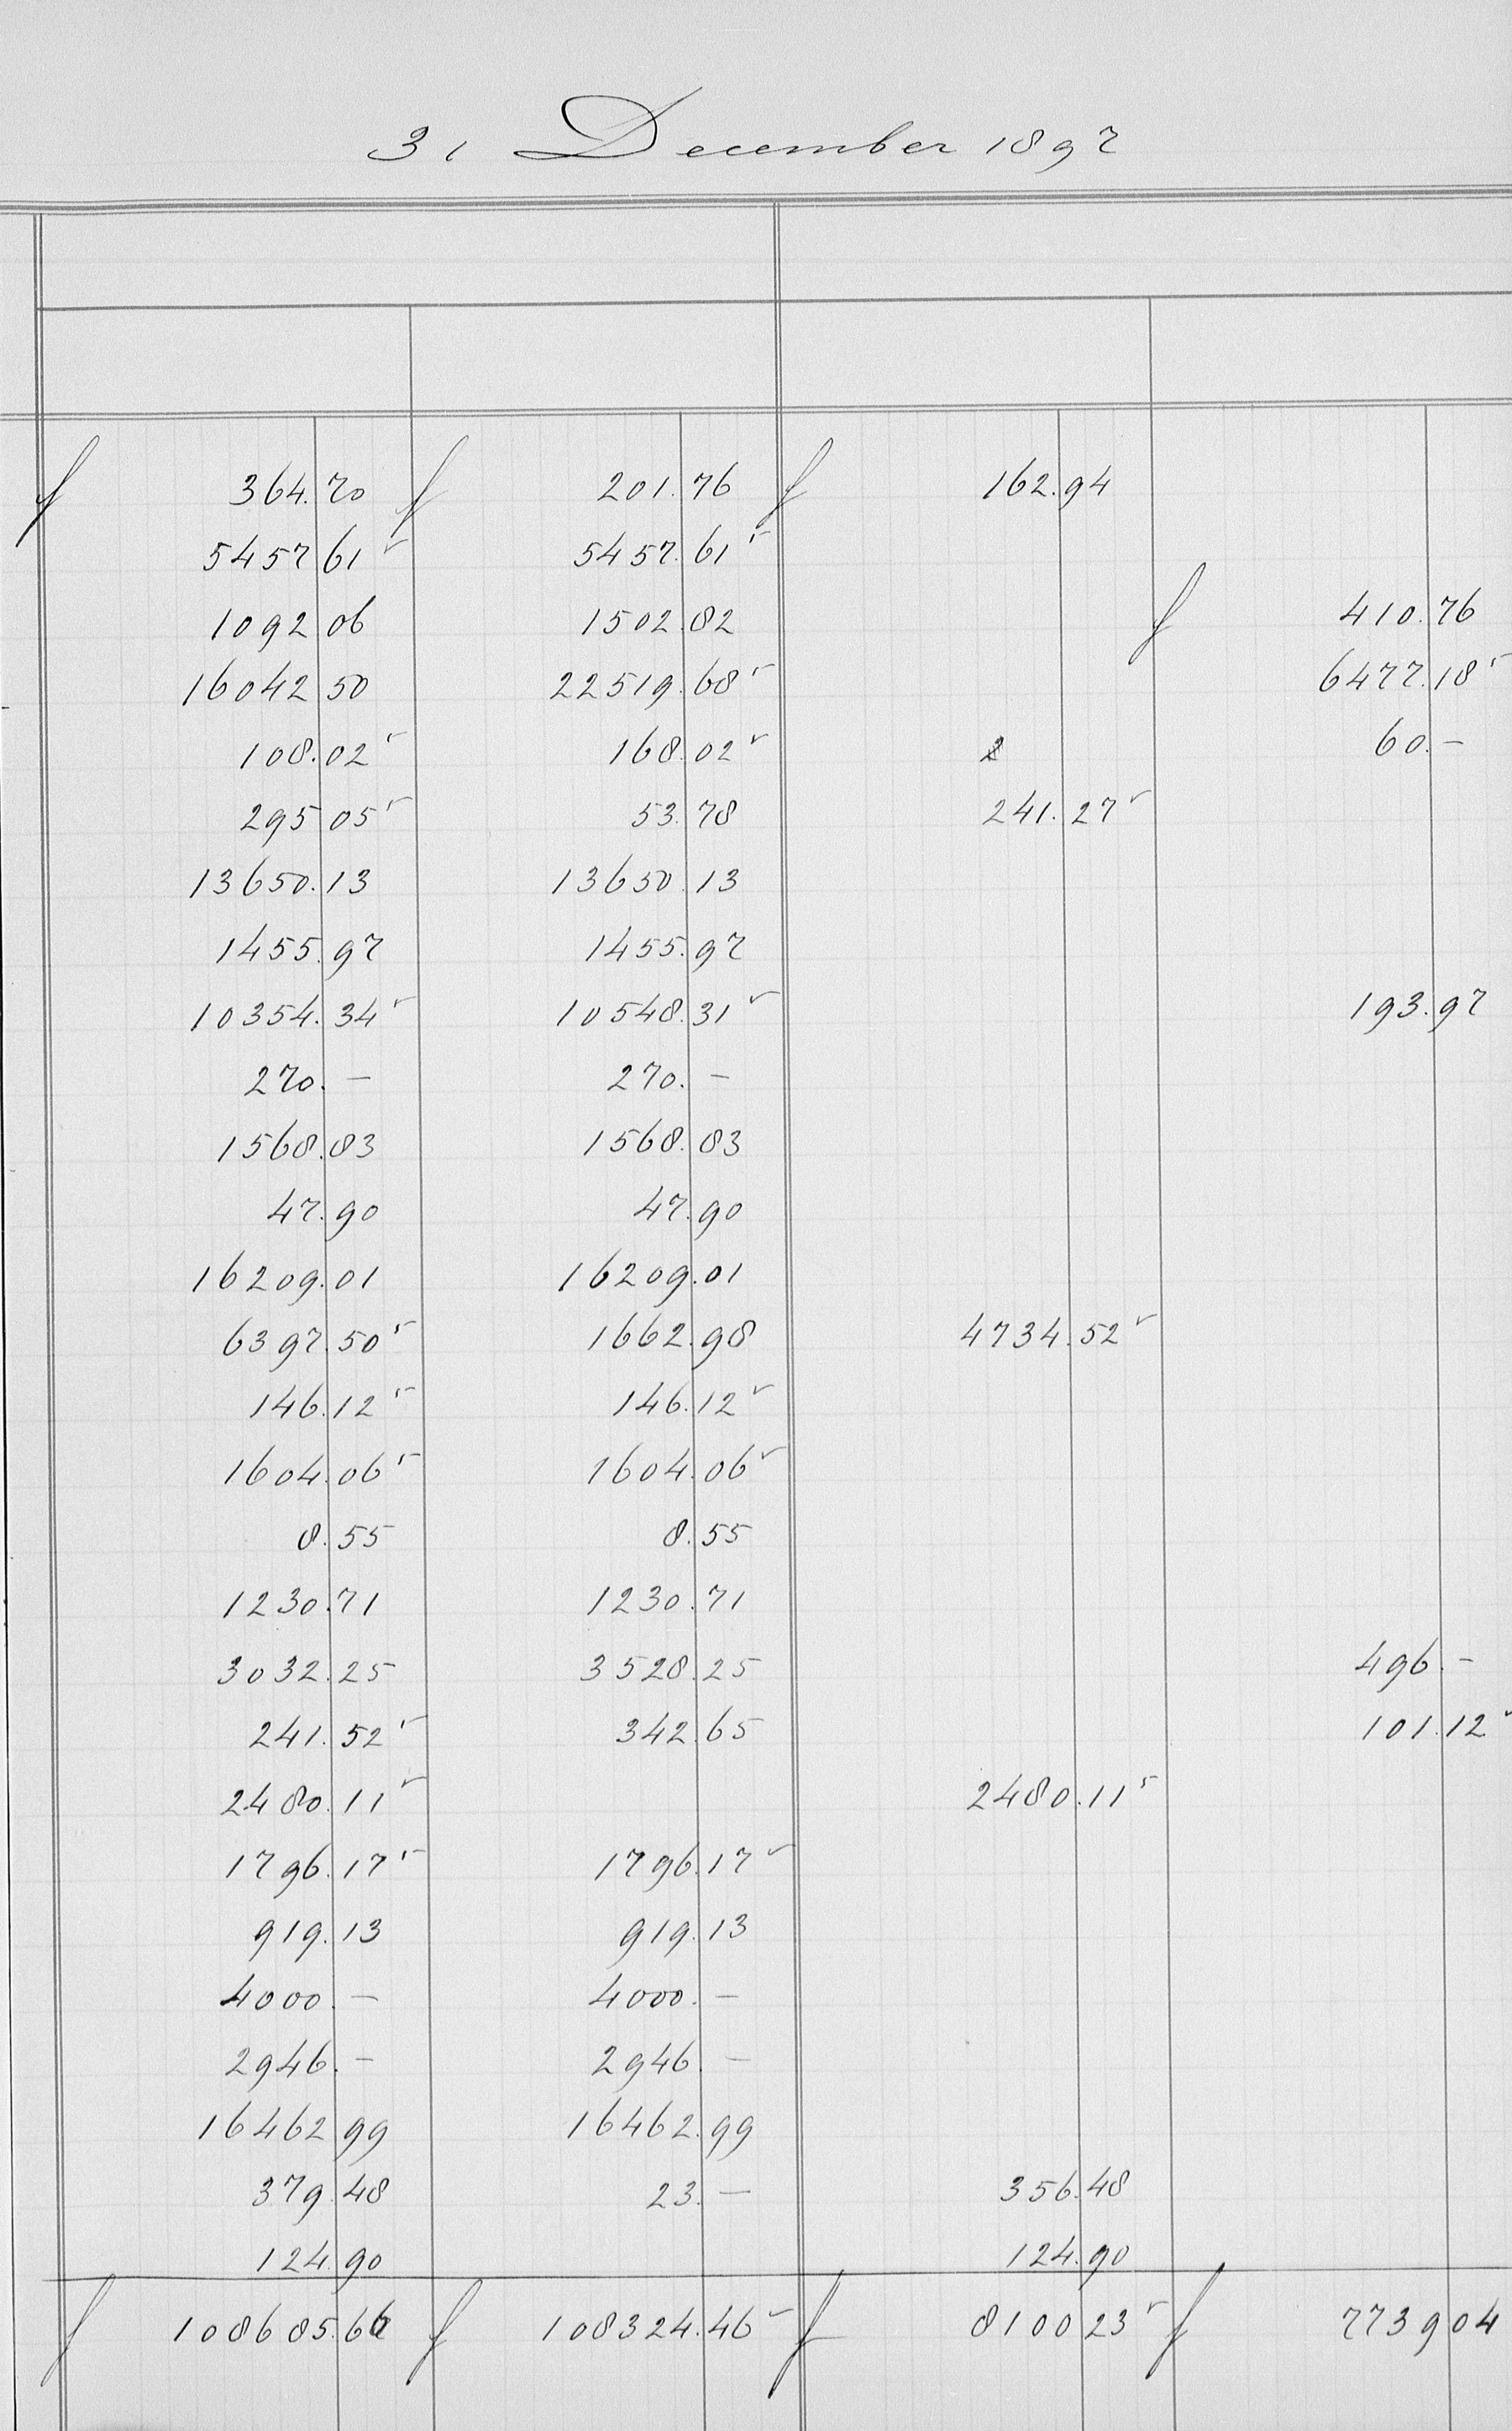 31 December 1897
ƒ 364.70 ƒ 201.76 ƒ 162.94
5457 61⁵ 5457.61⁵
1092 06 1502.82 ƒ 410.76
16042 50 22519.68⁵ 6477.18⁵
108.02⁵ 168.02⁵ 60.-
295 05⁵ 53.78 241.27⁵
13650.13 13650.13
1455.97 1455.97
10354.34⁵ 10548.31⁵ 193.97
270.- 270.-
1568.83 1568.83
47.90 47.90
16209.01 16209.01
6397.50⁵ 1662.98 4734.52⁵
146.12⁵ 146.12⁵
1604.06⁵ 1604.06⁵
8.55 8.55
1230.71 1230.71
3032.25 3528.25 496.-
241.52⁵ 342.65 101.12⁵
2480.11⁵ 2480.11⁵
1796.17⁵ 1796.17⁵
919.13 919.13
4000.- 4000.-
2946.- 2946.-
16462 99 16462.99
379.48 23.- 356.48
124.90 124.90
ƒ 108685.66 ƒ 108324.46⁵ ƒ 8100 23⁵ ƒ 7739 04